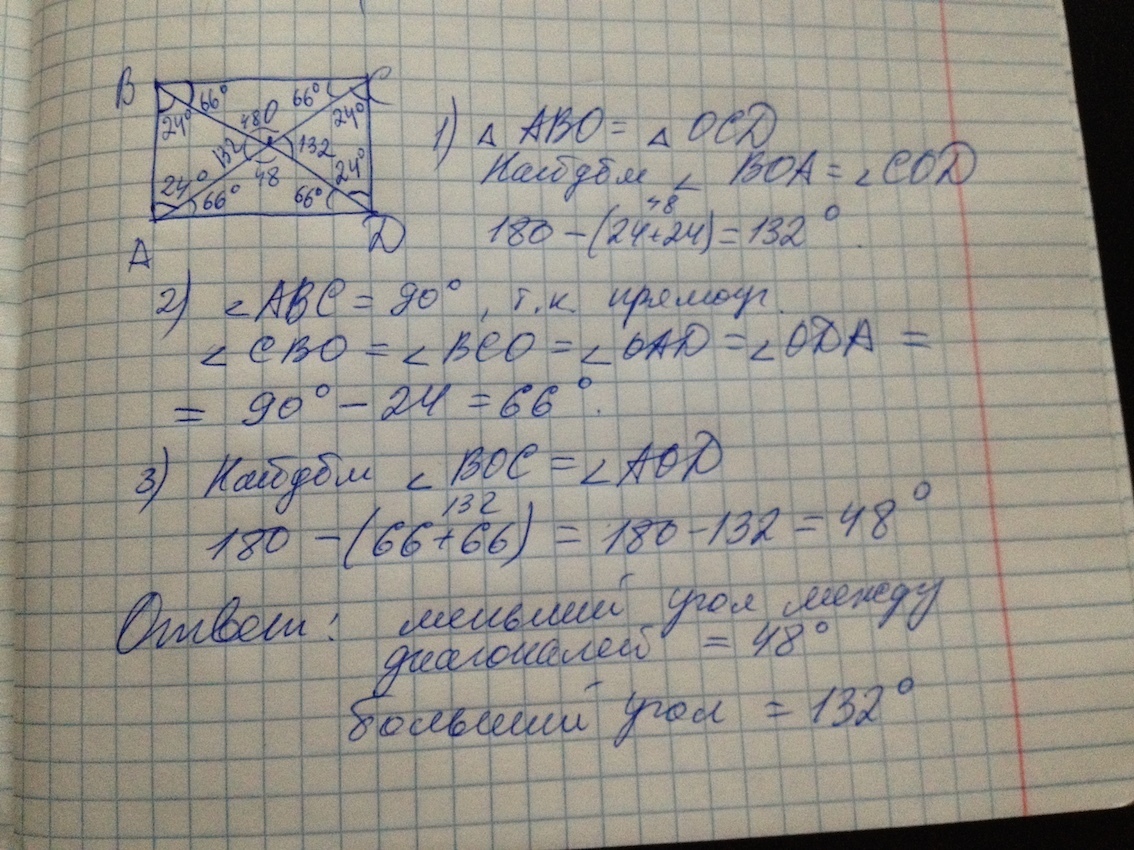 B C
66° 66°
24° 48 O 24°
132 132
24° 48 24°
66° 66°
A D
1) △ ABO = △ OCD
Найдём ∠ BOA = ∠COD
48
180 - (24+24) = 132°.
2) ∠ABC = 90°, т.к. прямоуг.
∠ CBO = ∠ BCO = ∠ OAD = ∠ ODA =
= 90° - 24 = 66°.
3) Найдём ∠ BOC = ∠ AOD
132
180 - (66+66) = 180-132 = 48°
Ответ: меньший угол между
диагоналей = 48°
больший угол = 132°